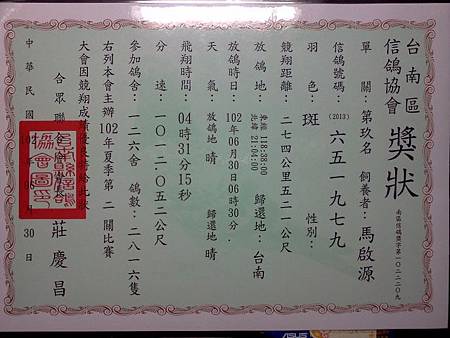 台南區
信鴿協會
獎狀
南區信鴿獎字第一〇二二二〇九
單關：第玖名 飼養者：馬啟源
信鴿號碼：(2013) 六五一九七九
羽色：斑 性別：
競翔距離：二七四公里五二一公尺
放鴿地：東經 118:38:00 北緯 21:04:00 歸還地：台南
放鴿時日：102年06月30日06時30分.
天氣：放鴿地 晴 歸還地 晴
飛翔時間：04時31分15秒
分速：一〇一二.〇五二公尺
參加鴿舍：一二六舍 鴿數：二八一六隻
右列本會主辦102年夏季第 二 關比賽
大會因競翔成績優良特給此狀
合眾聯 莊慶昌
中華民國 月30日
ASUS